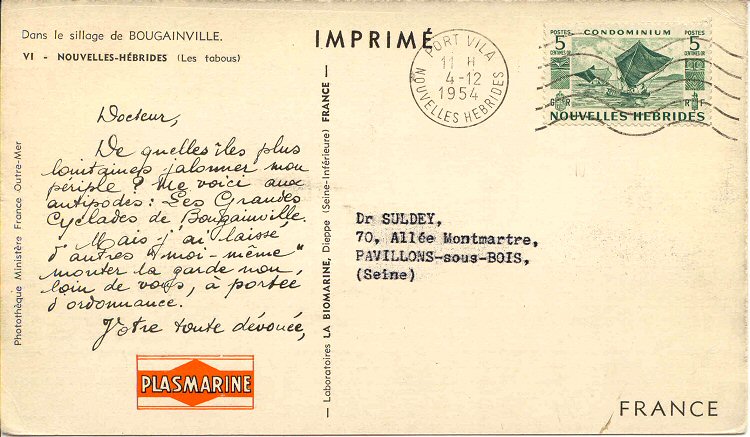 Dans le sillage de BOUGAINVILLE.
VI - NOUVELLES-HÉBRIDES (Les tabous)
Docteur,
De quelles îles plus
lointaines jalonner mon
périple ? Me voici aux
antipodes : Les Grandes
Cyclades de Bougainville.
Mais j'ai laissé
d'autres "moi-même"
monter la garde non
loin de vous, à portée
d'ordonnance.
Votre toute dévouée,
PLASMARINE
Photothèque Ministère France Outre-Mer
Laboratoires LA BIOMARINE, Dieppe (Seine-Inférieure) FRANCE
IMPRIMÉ
PORT VILA
11 H
4-12
1954
NOUVELLES HEBRIDES
POSTES CONDOMINIUM POSTES
5 5
CENTIMES OR CENTIMES OR
G R R F
NOUVELLES HEBRIDES
Dr SULDEY,
70, Allée Montmartre,
PAVILLONS-sous-BOIS,
(Seine)
FRANCE